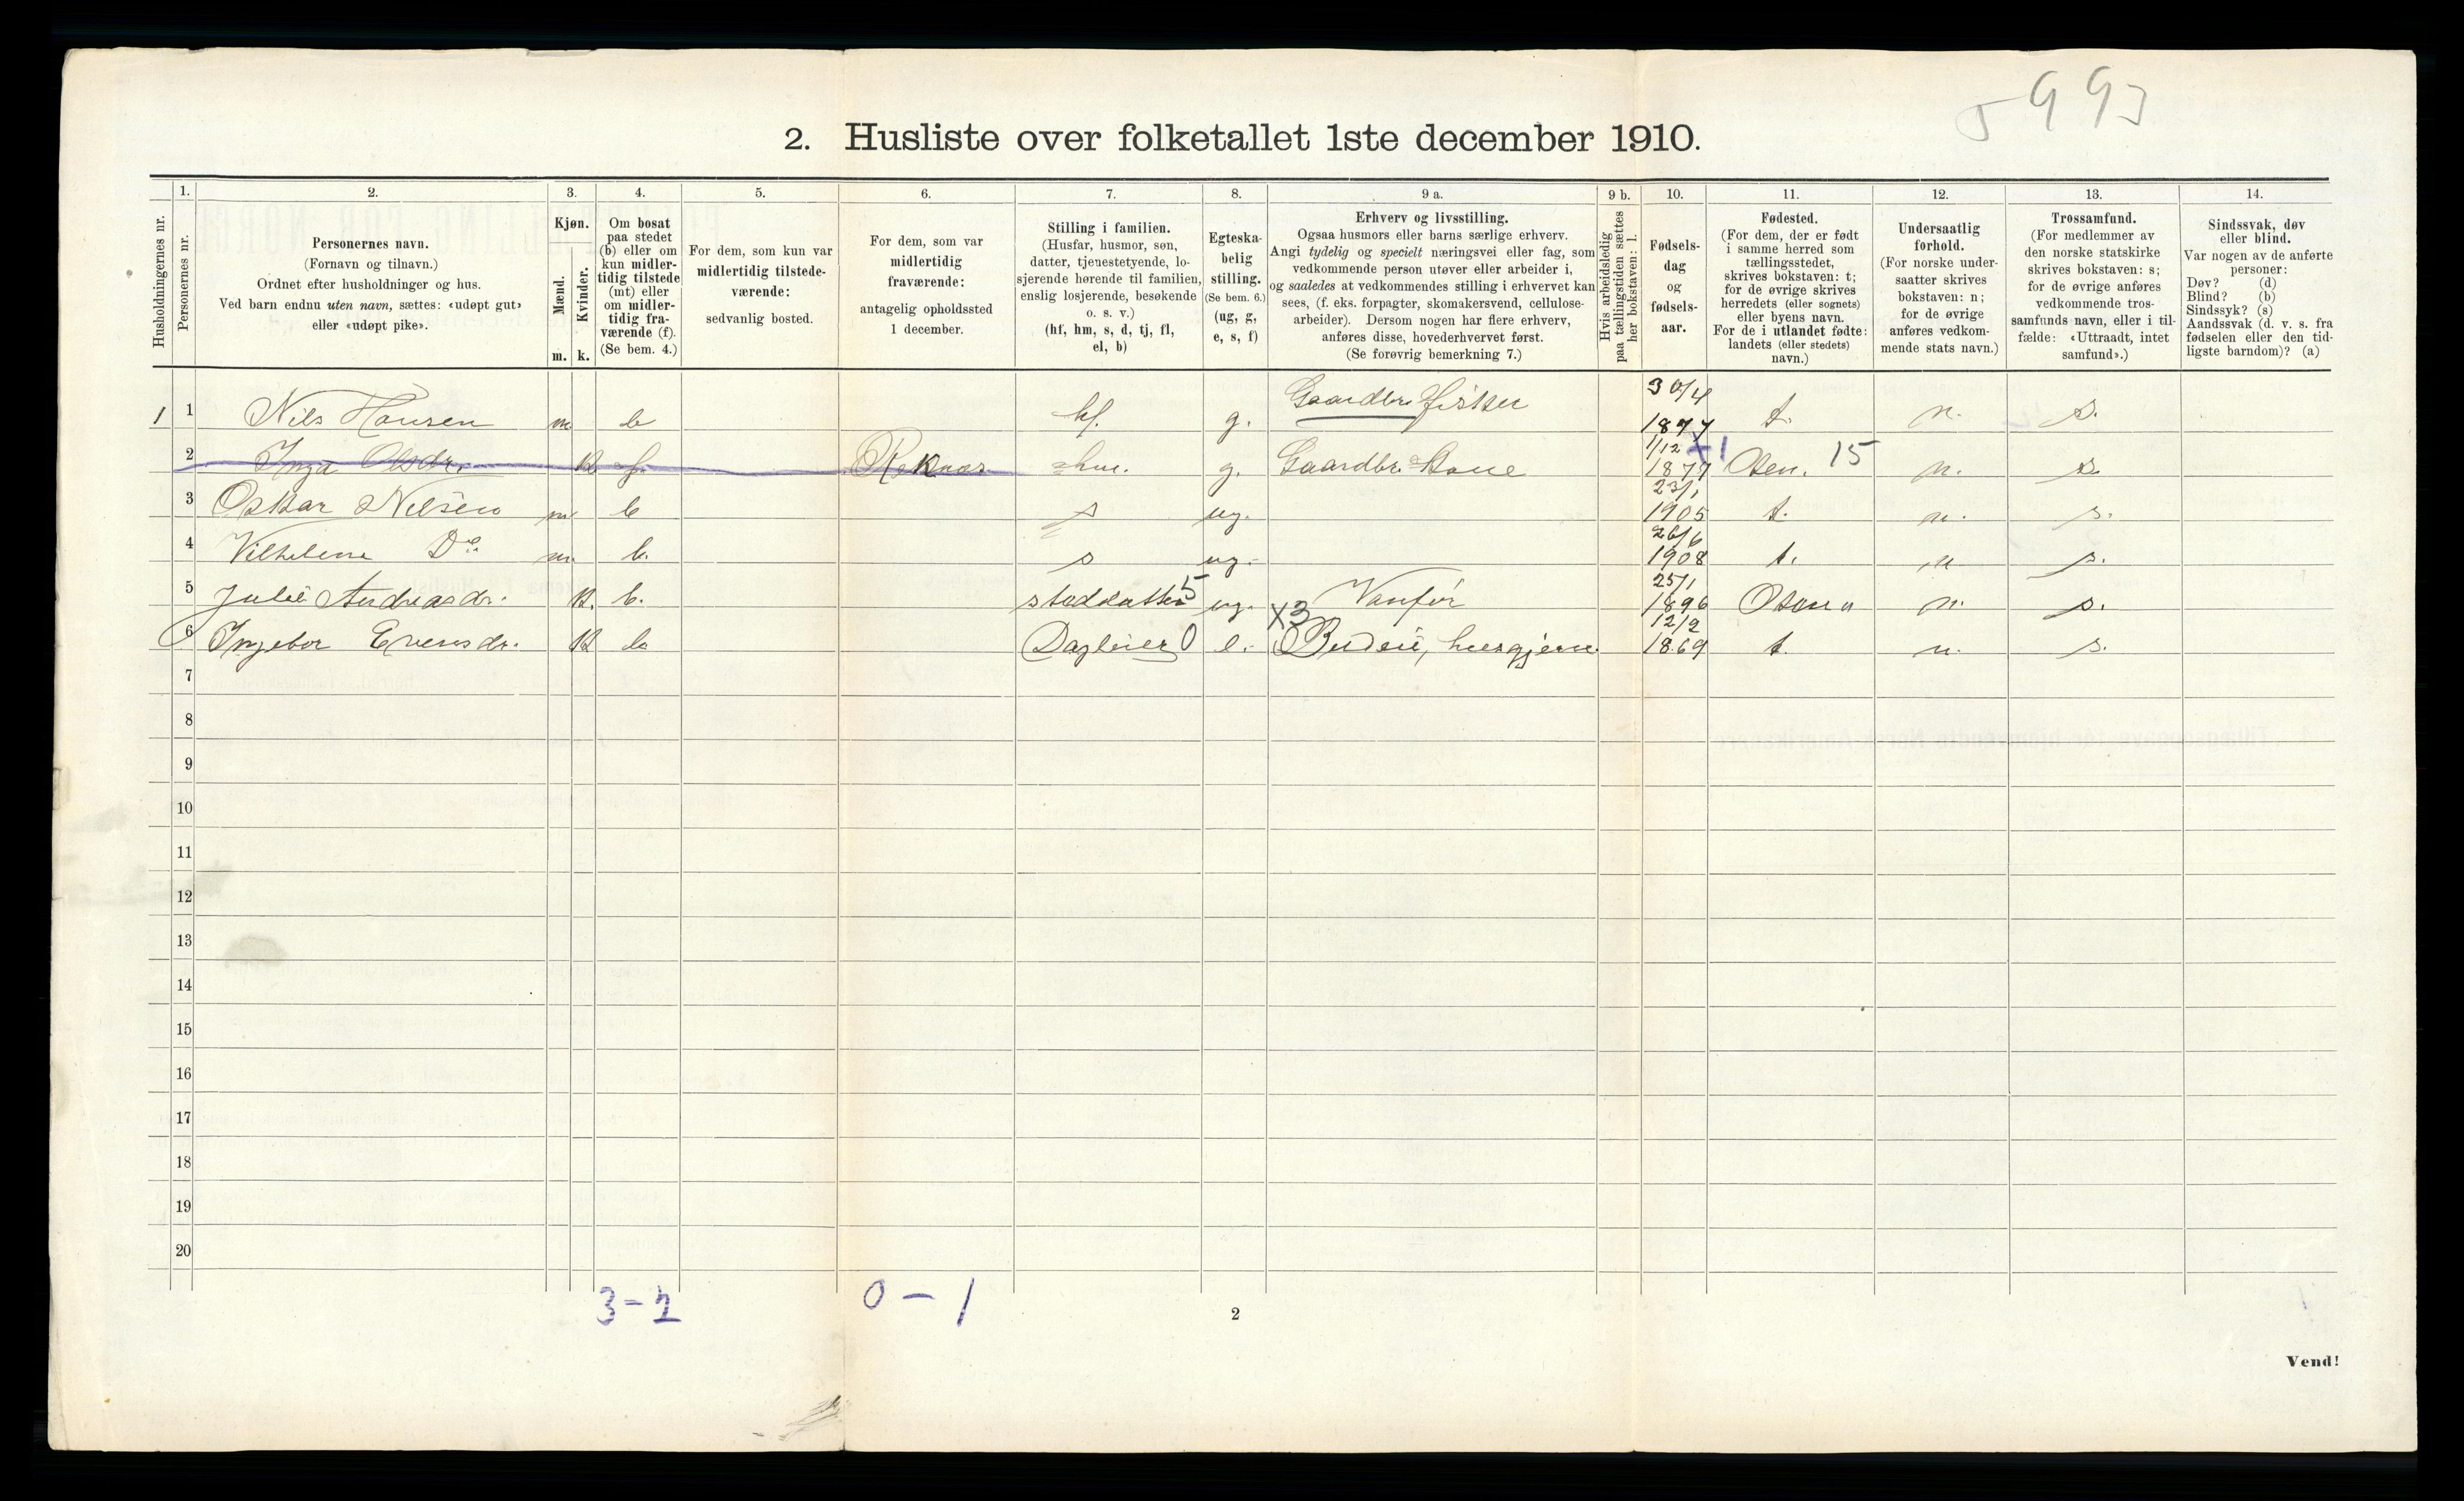 5993
2. Husliste over folketallet 1ste december 1910.
Husholdningernes nr.
1.
Personernes nr.
2.
Personernes navn.
(Fornavn og tilnavn.)
Ordnet efter husholdninger og hus.
Ved barn endnu uten navn, sættes: «udøpt gut»
eller «udøpt pike».
3.
Kjøn.
Mænd.
Kvinder.
m. k.
4.
Om bosat
paa stedet
(b) eller om
kun midler-
tidig tilstede
(mt) eller
om midler-
tidig fra-
værende (f).
(Se bem. 4.)
5.
For dem, som kun var
midlertidig tilstede-
værende:
sedvanlig bosted.
6.
For dem, som var
midlertidig
fraværende:
antagelig opholdssted
1 december.
7.
Stilling i familien.
(Husfar, husmor, søn,
datter, tjenestetyende, lo-
sjerende hørende til familien,
enslig losjerende, besøkende
o. s. v.)
(hf, hm, s, d, tj, fl,
el, b)
8.
Egteska-
belig
stilling.
(Se bem. 6.)
(ug, g,
e, s, f)
9 a.
Erhverv og livsstilling.
Ogsaa husmors eller barns særlige erhverv.
Angi tydelig og specielt næringsvei eller fag, som
vedkommende person utøver eller arbeider i,
og saaledes at vedkommendes stilling i erhvervet kan
sees, (f. eks. forpagter, skomakersvend, cellulose-
arbeider). Dersom nogen har flere erhverv,
anføres disse, hovederhvervet først.
(Se forøvrig bemerkning 7.)
9 b.
Hvis arbeidsledig
paa tællingstiden sættes
her bokstaven: l.
10.
Fødsels-
dag
og
fødsels-
aar.
11.
Fødested.
(For dem, der er født
i samme herred som
tællingsstedet,
skrives bokstaven: t;
for de øvrige skrives
herredets (eller sognets)
eller byens navn.
For de i utlandet fødte:
landets (eller stedets)
navn.)
12.
Undersaatlig
forhold.
(For norske under-
saatter skrives
bokstaven: n;
for de øvrige
anføres vedkom-
mende stats navn.)
13.
Trossamfund.
(For medlemmer av
den norske statskirke
skrives bokstaven: s;
for de øvrige anføres
vedkommende tros-
samfunds navn, eller i til-
fælde: «Uttraadt, intet
samfund».)
14.
Sindssvak, døv
eller blind.
Var nogen av de anførte
personer:
Døv? (d)
Blind? (b)
Sindssyk? (s)
Aandssvak (d. v. s. fra
fødselen eller den tid-
ligste barndom)? (a)
1 1 Nils Hansen m b hf. g. Gaardbr. fisker 30/4 1877 t. n. s.
2 Inga Olsdr. k f. Reknes hm. g. Gaardbr. Kone 1/12 1877 +1 Osen. 15 n. s.
3 Oskar Nilsen m b s ug. 23/1 1905 t. n. s.
4 Vilhelm Do. m. b. s ug. 26/6 1908 t. n s.
5 Julie Andreasdr. k. b. staddatter 5 ug. Vanfør 25/1 1896 Osen n. s.
6 Ingebor Evensdr. k b Dagleier 0 e. X3 Budeie, husgjerne 12/2 1869 t. n. s.
7
8
9
10
11
12
13
14
15
16
17
18
19
20
3-2 0-1
2
Vend!